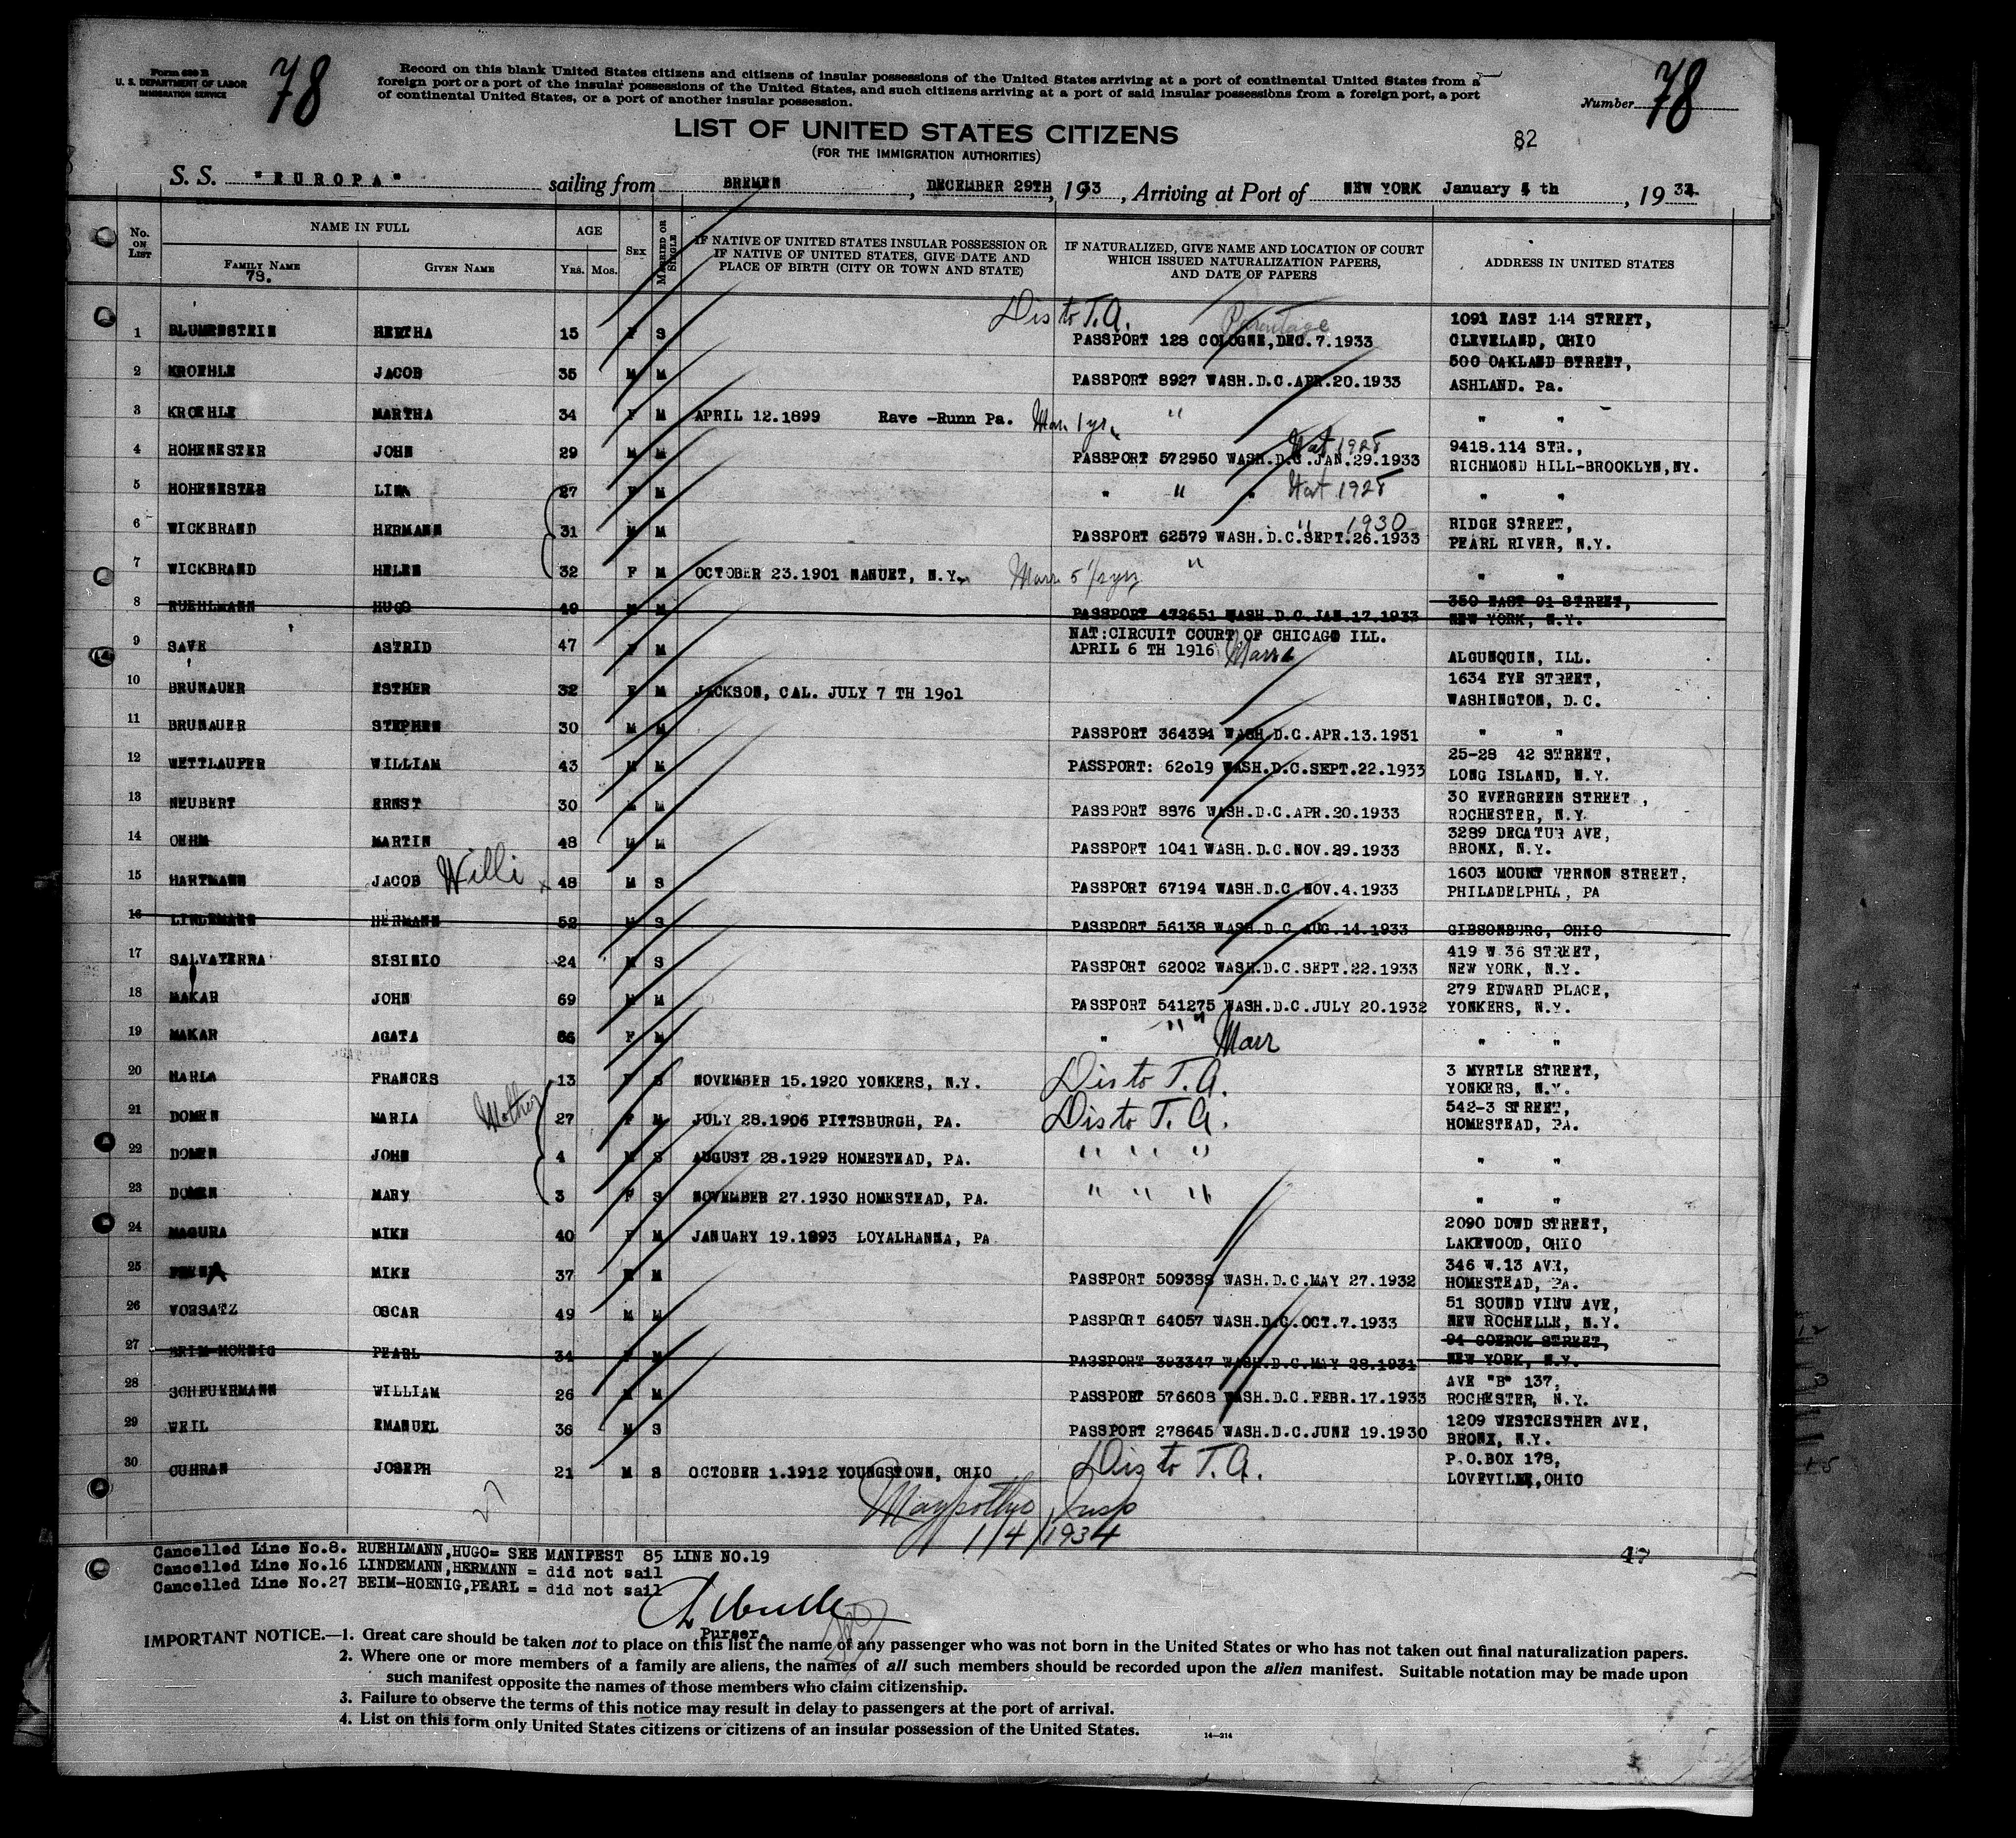 Form 630 B
U. S. DEPARTMENT OF LABOR
IMMIGRATION SERVICE
78
Record on this blank United States citizens and citizens of insular possessions of the United States arriving at a port of continental United States from a
foreign port or a port of the insular possessions of the United States, and such citizens arriving at a port of said insular possessions from a foreign port, a port
of continental United States, or a port of another insular possession.
Number 78
LIST OF UNITED STATES CITIZENS
(FOR THE IMMIGRATION AUTHORITIES)
82
S. S. "EUROPA" sailing from BREMEN, DECEMBER 29TH, 1933, Arriving at Port of NEW YORK January 4 th, 1934
No. ON LIST NAME IN FULL AGE SEX MARRIED OR SINGLE IF NATIVE OF UNITED STATES INSULAR POSSESSION OR IF NATIVE OF UNITED STATES, GIVE DATE AND PLACE OF BIRTH (CITY OR TOWN AND STATE) IF NATURALIZED, GIVE NAME AND LOCATION OF COURT WHICH ISSUED NATURALIZATION PAPERS, AND DATE OF PAPERS ADDRESS IN UNITED STATES
FAMILY NAME GIVEN NAME Yrs. Mos.
78.
Dis to T.A. Parentage
1 BLUMENSTEIN HERTHA 15 F S PASSPORT 128 COLOGNE,DEC.7.1933 1091 EAST 144 STREET, CLEVELAND, OHIO
2 KROEHLE JACOB 35 M M PASSPORT 8927 WASH.D.C.APR.20.1933 500 OAKLAND STREET, ASHLAND. Pa.
3 KROEHLE MARTHA 34 F M APRIL 12.1899 Rave -Runn Pa. Mar. 1 yr. " " "
4 HOHENESTER JOHN 29 M M Nat 1928 PASSPORT 572950 WASH.D.C.JAN.29.1933 9418.114 STR., RICHMOND HILL-BROOKLYN,NY.
5 HOHENESTER LINA 27 F M " " " Nat 1928 " "
6 WICKBRAND HERMANN 31 M M " 1930 PASSPORT 62579 WASH.D.C.SEPT.26.1933 RIDGE STREET, PEARL RIVER, N.Y.
7 WICKBRAND HELEN 32 F M OCTOBER 23.1901 NANUET, N.Y. Marr 5 1/2 yrs " " "
8 RUEHLMANN HUGO 49 M M PASSPORT 472651 WASH.D.C.JAN.17.1933 350 EAST 91 STREET, NEW YORK, N.Y.
9 SAVE ASTRID 47 F M NAT:CIRCUIT COURT OF CHICAGO ILL. APRIL 6 TH 1916 Marr ALGUNQUIN, ILL.
10 BRUNAUER ESTHER 32 F M JACKSON, CAL. JULY 7 TH 19o1 1634 EYE STREET, WASHINGTON, D.C.
11 BRUNAUER STEPHEN 30 M M PASSPORT 364394 WASH.D.C.APR.13.1931 " "
12 WETTLAUFER WILLIAM 43 M M PASSPORT: 62o19 WASH.D.C.SEPT.22.1933 25-28 42 STREET, LONG ISLAND, N.Y.
13 NEUBERT ERNST 30 M M PASSPORT 8876 WASH.D.C.APR.20.1933 30 EVERGREEN STREET, ROCHESTER, N.Y.
14 OEHM MARTIN 48 M M PASSPORT 1041 WASH.D.C.NOV.29.1933 3289 DECATUR AVE, BRONX, N.Y.
15 HARTMANN JACOB Willi x 48 M S PASSPORT 67194 WASH.D.C.NOV.4.1933 1603 MOUNT VERNON STREET, PHILADELPHIA, PA
16 LINDEMANN HERMANN 52 M S PASSPORT 56138 WASH.D.C.AUG.14.1933 GIBSONBURG, OHIO
17 SALVATERRA SISINIO 24 M S PASSPORT 62002 WASH.D.C.SEPT.22.1933 419 W.36 STREET, NEW YORK, N.Y.
18 MAKAR JOHN 69 M M PASSPORT 541275 WASH.D.C.JULY 20.1932 279 EDWARD PLACE, YONKERS, N.Y.
19 MAKAR AGATA 56 F M " " " Marr " "
20 HARLA FRANCES 13 F S NOVEMBER 15.1920 YONKERS, N.Y. Dis to T.A. 3 MYRTLE STREET, YONKERS, N.Y.
Mother
21 DOMEN MARIA 27 F M JULY 28.1906 PITTSBURGH, PA. Dis to T.A. 542-3 STREET, HOMESTEAD, PA.
22 DOMEN JOHN 4 M S AUGUST 28.1929 HOMESTEAD, PA. " " " " "
23 DOMEN MARY 3 F S NOVEMBER 27.1930 HOMESTEAD, PA. " " " " "
24 MAGURA MIKE 40 F M JANUARY 19.1893 LOYALHANNA, PA. 2090 DOWD STREET, LAKEWOOD, OHIO
25 MIKE 37 M M PASSPORT 509388 WASH.D.C.MAY 27.1932 346 W.13 AVE, HOMESTEAD, PA.
26 VORSATZ OSCAR 49 M M PASSPORT 64057 WASH.D.C.OCT.7.1933 51 SOUND VIEW AVE, NEW ROCHELLE, N.Y.
27 BEIM-HOENIG PEARL 34 F M PASSPORT 393347 WASH.D.C.MAY 28.1931 94 GOERCK STREET, NEW YORK, N.Y.
28 SCHEUERMANN WILLIAM 26 M M PASSPORT 576608 WASH.D.C.FEBR.17.1933 AVE "B" 137, ROCHESTER, N.Y.
29 WEIL EMANUEL 36 M S PASSPORT 278645 WASH.D.C.JUNE 19.1930 1209 WESTCESTHER AVE, BRONX, N.Y.
30 CUHRAN JOSEPH 21 M S OCTOBER 1.1912 YOUNGSTOWN, OHIO Dis to T.A. P.O.BOX 178, LOVEVILLE,OHIO
27
Insp
1/4/1934
47
Cancelled Line No.8. RUEHLMANN,HUGO= SEE MANIFEST 85 LINE NO.19
Cancelled Line No.16 LINDEMANN,HERMANN = did not sail
Cancelled Line No.27 BEIM-HOENIG,PEARL = did not sail
Purser.
IMPORTANT NOTICE.—1. Great care should be taken not to place on this list the name of any passenger who was not born in the United States or who has not taken out final naturalization papers.
2. Where one or more members of a family are aliens, the names of all such members should be recorded upon the alien manifest. Suitable notation may be made upon
such manifest opposite the names of those members who claim citizenship.
3. Failure to observe the terms of this notice may result in delay to passengers at the port of arrival.
4. List on this form only United States citizens or citizens of an insular possession of the United States.
14—214